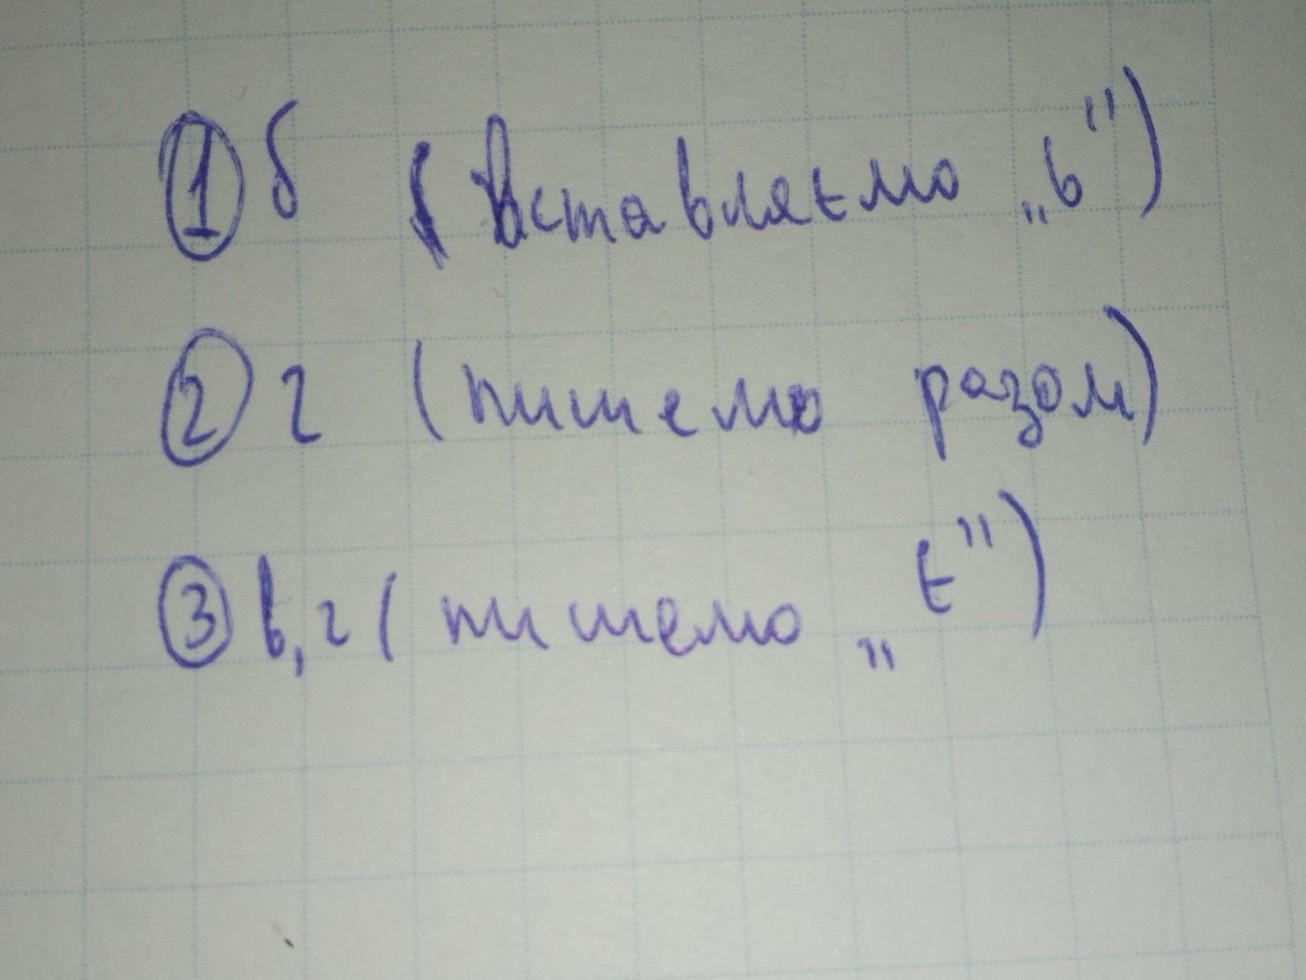 1 б (Вставляємо „ь")
2 г (пишемо разом)
3 в, г (пишемо „є")